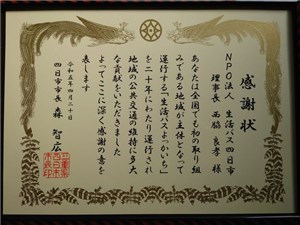 感謝状
NPO法人 生活バス四日市
理事長 西脇 良孝 様
あなたは全国でも初の取り組
みである地域が主体となって
運行する「生活バスよっかいち」
を二十年にわたり運行され
地域の公共交通の維持に多大
な貢献をいただきました
よってここに深く感謝の意を
表します
令和五年四月二十日
四日市市長 森 智広